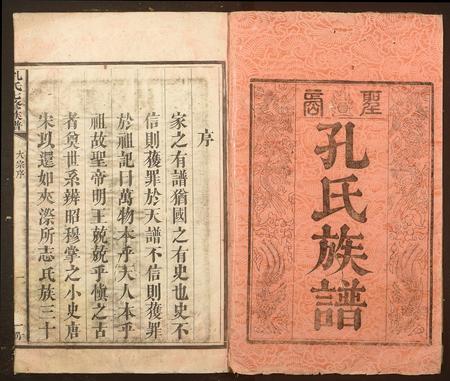 聖裔
孔氏族譜
序
家之有譜猶國之有史也史不
信則獲罪於天譜不信則獲罪
於祖記曰萬物本乎天人本乎
祖故聖帝明王兢兢乎慎之古
者奠世系辨昭穆掌之小史唐
宋以還如夾漈所志氏族三十
孔氏族譜
大宗序
一